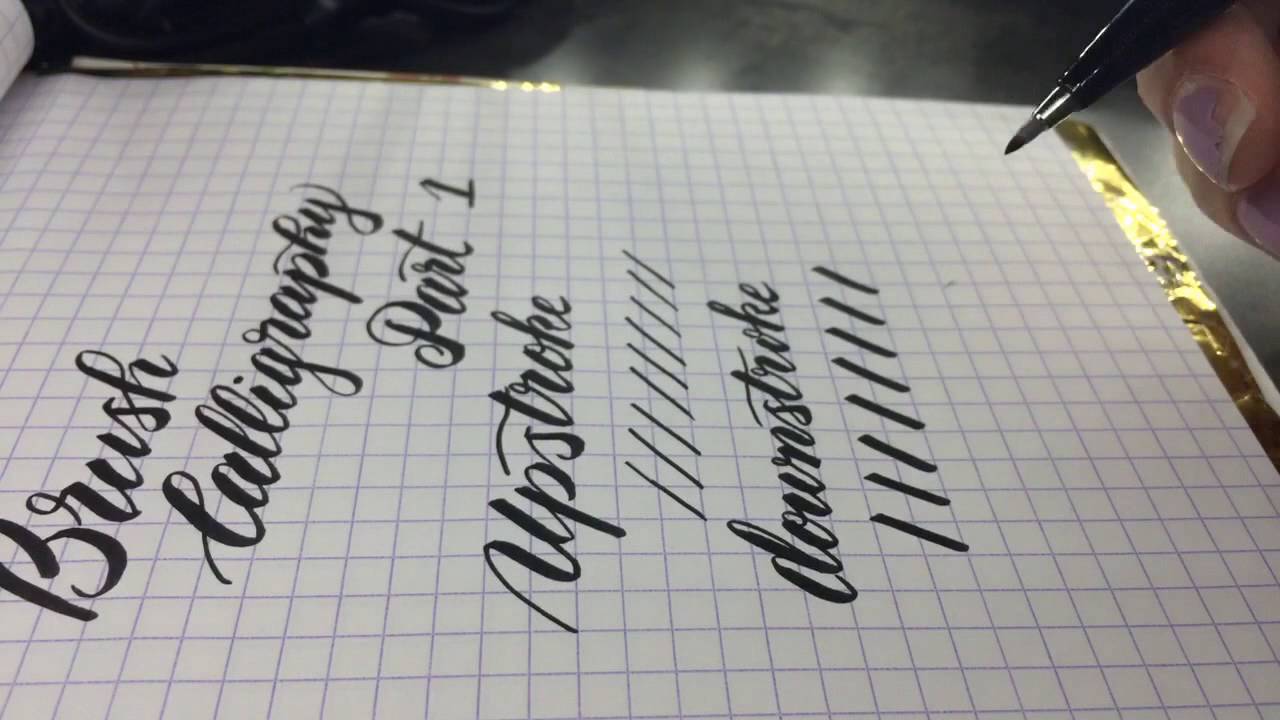 Brush
Calligraphy
Part 1
Upstroke
downstroke